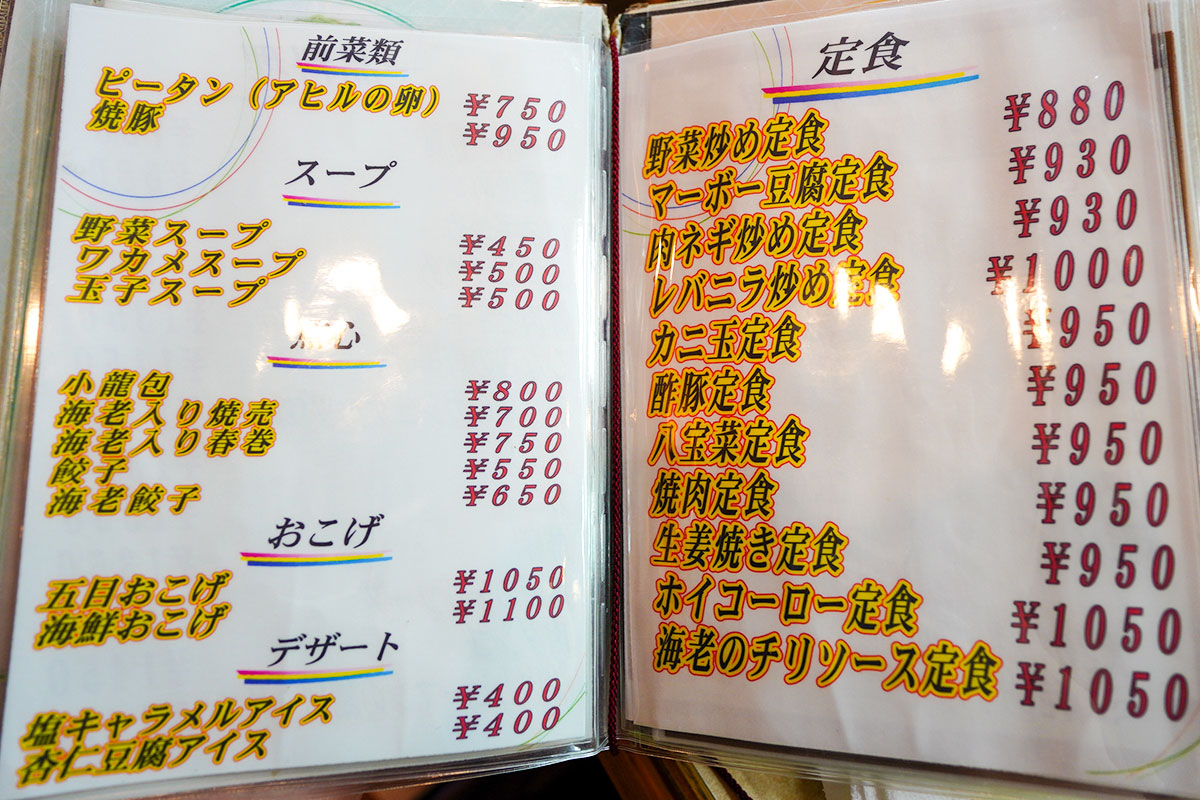 前菜類
ピータン（アヒルの卵） ¥750
焼豚 ¥950
スープ
野菜スープ ¥450
ワカメスープ ¥500
玉子スープ ¥500
点心
小龍包 ¥800
海老入り焼売 ¥700
海老入り春巻 ¥750
餃子 ¥550
海老餃子 ¥650
おこげ
五目おこげ ¥1050
海鮮おこげ ¥1100
デザート
塩キャラメルアイス ¥400
杏仁豆腐アイス ¥400
定食
野菜炒め定食 ¥880
マーボー豆腐定食 ¥930
肉ネギ炒め定食 ¥930
レバニラ炒め定食 ¥1000
カニ玉定食 ¥950
酢豚定食 ¥950
八宝菜定食 ¥950
焼肉定食 ¥950
生姜焼き定食 ¥950
ホイコーロー定食 ¥1050
海老のチリソース定食 ¥1050